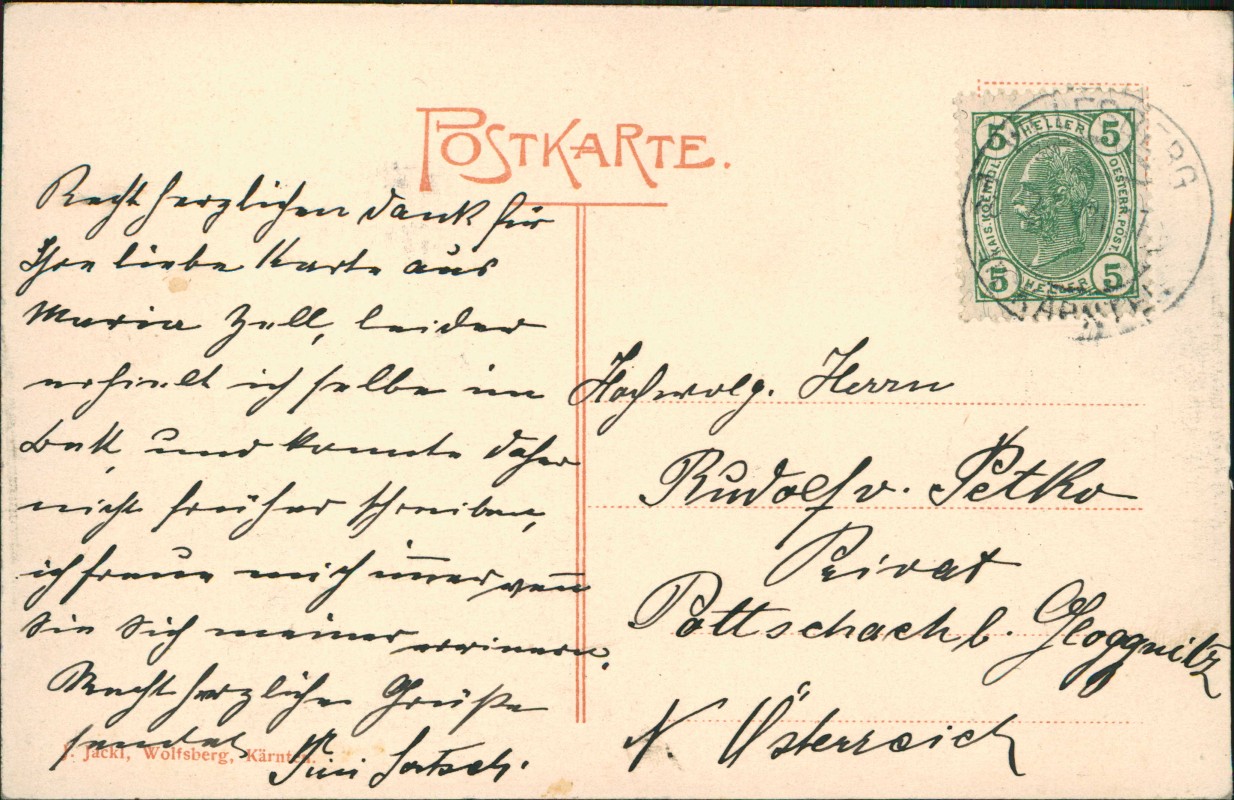 POSTKARTE.
Recht herzlichen Dank für
Ihre liebe Karte aus
Maria Zell, leider
erhielt ich selbe im
Bett, und konnte daher
nicht früher schreiben,
ich freue mich im̄er wen̄
Sie Sich meiner errinern.
Recht herzliche Grüße
sendet
J. Jäckl, Wolfsberg, Kärnten.
5 HELLER 5
KAIS. KOENIGL. OESTERR. POST.
5 HELLER 5
Hochwolg. Herrn
Rudolf v. Petko
Privat
Pottschach b. Gloggnitz
N Österreich